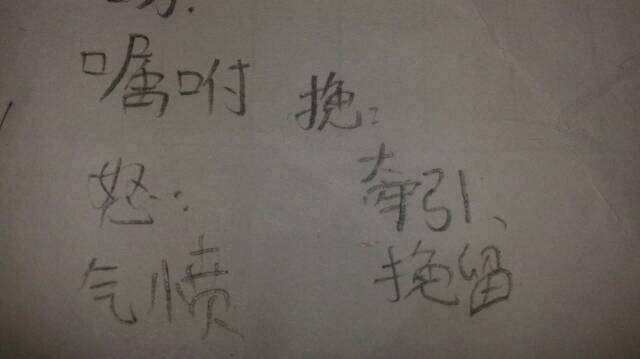 嘱咐
怒：
气愤
挽：
牵引、
挽留